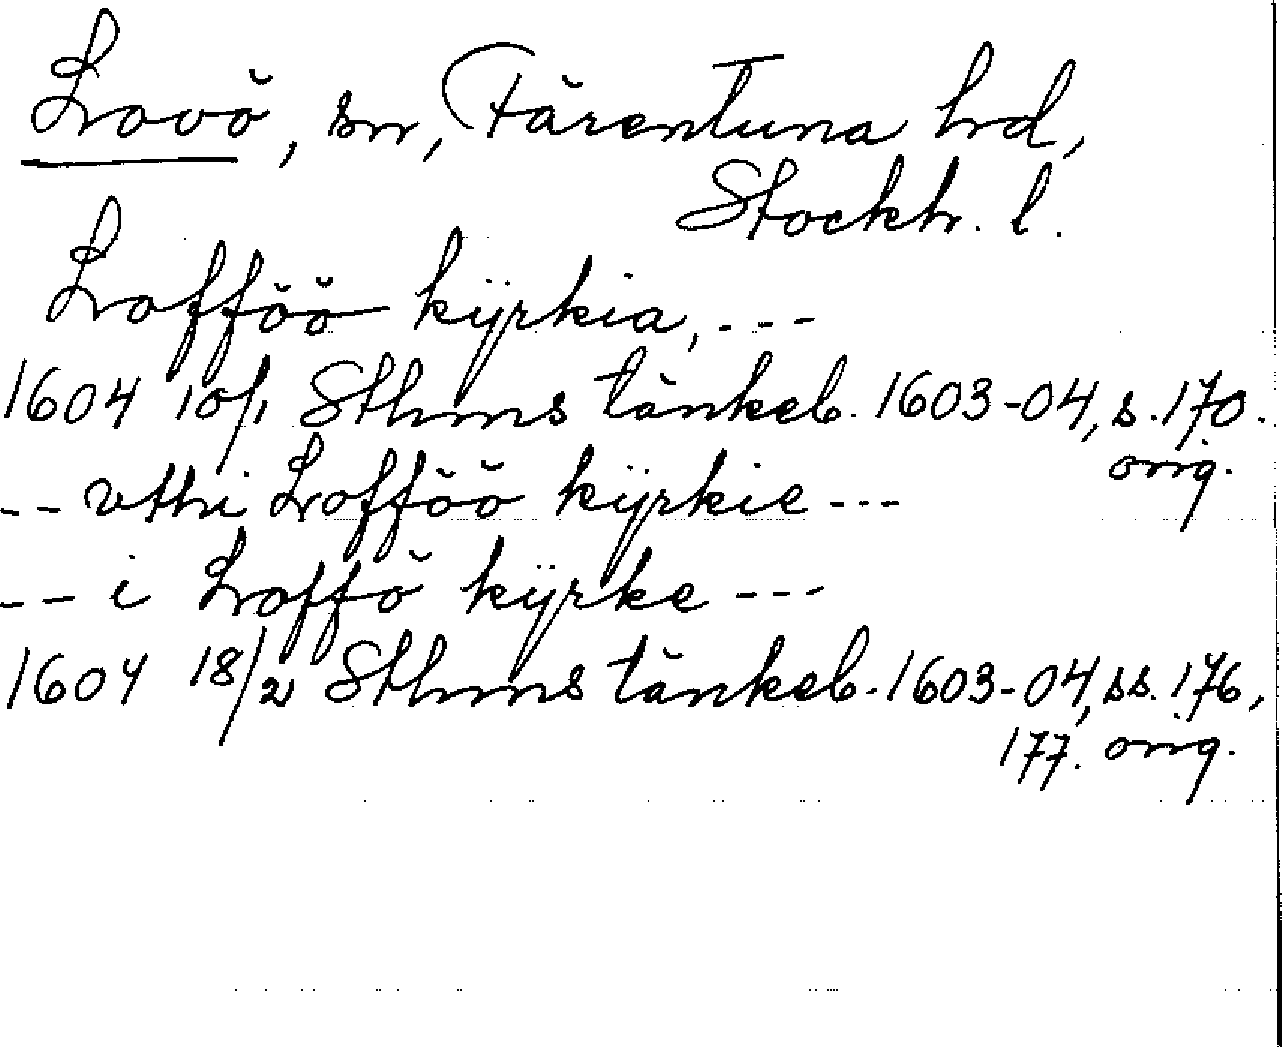 Lovö, sn, Färentuna hrd,
Stockh. l.
Lofföö kÿrkia, ---
1604 10/1 Sthms tänkeb. 1603-04, s. 170.
orig.
-- vthi Lofföö kÿrkie ---
-- i Loffö kÿrke ---
1604 18/2 Sthms tänkeb. 1603-04, ss. 176,
177. orig.